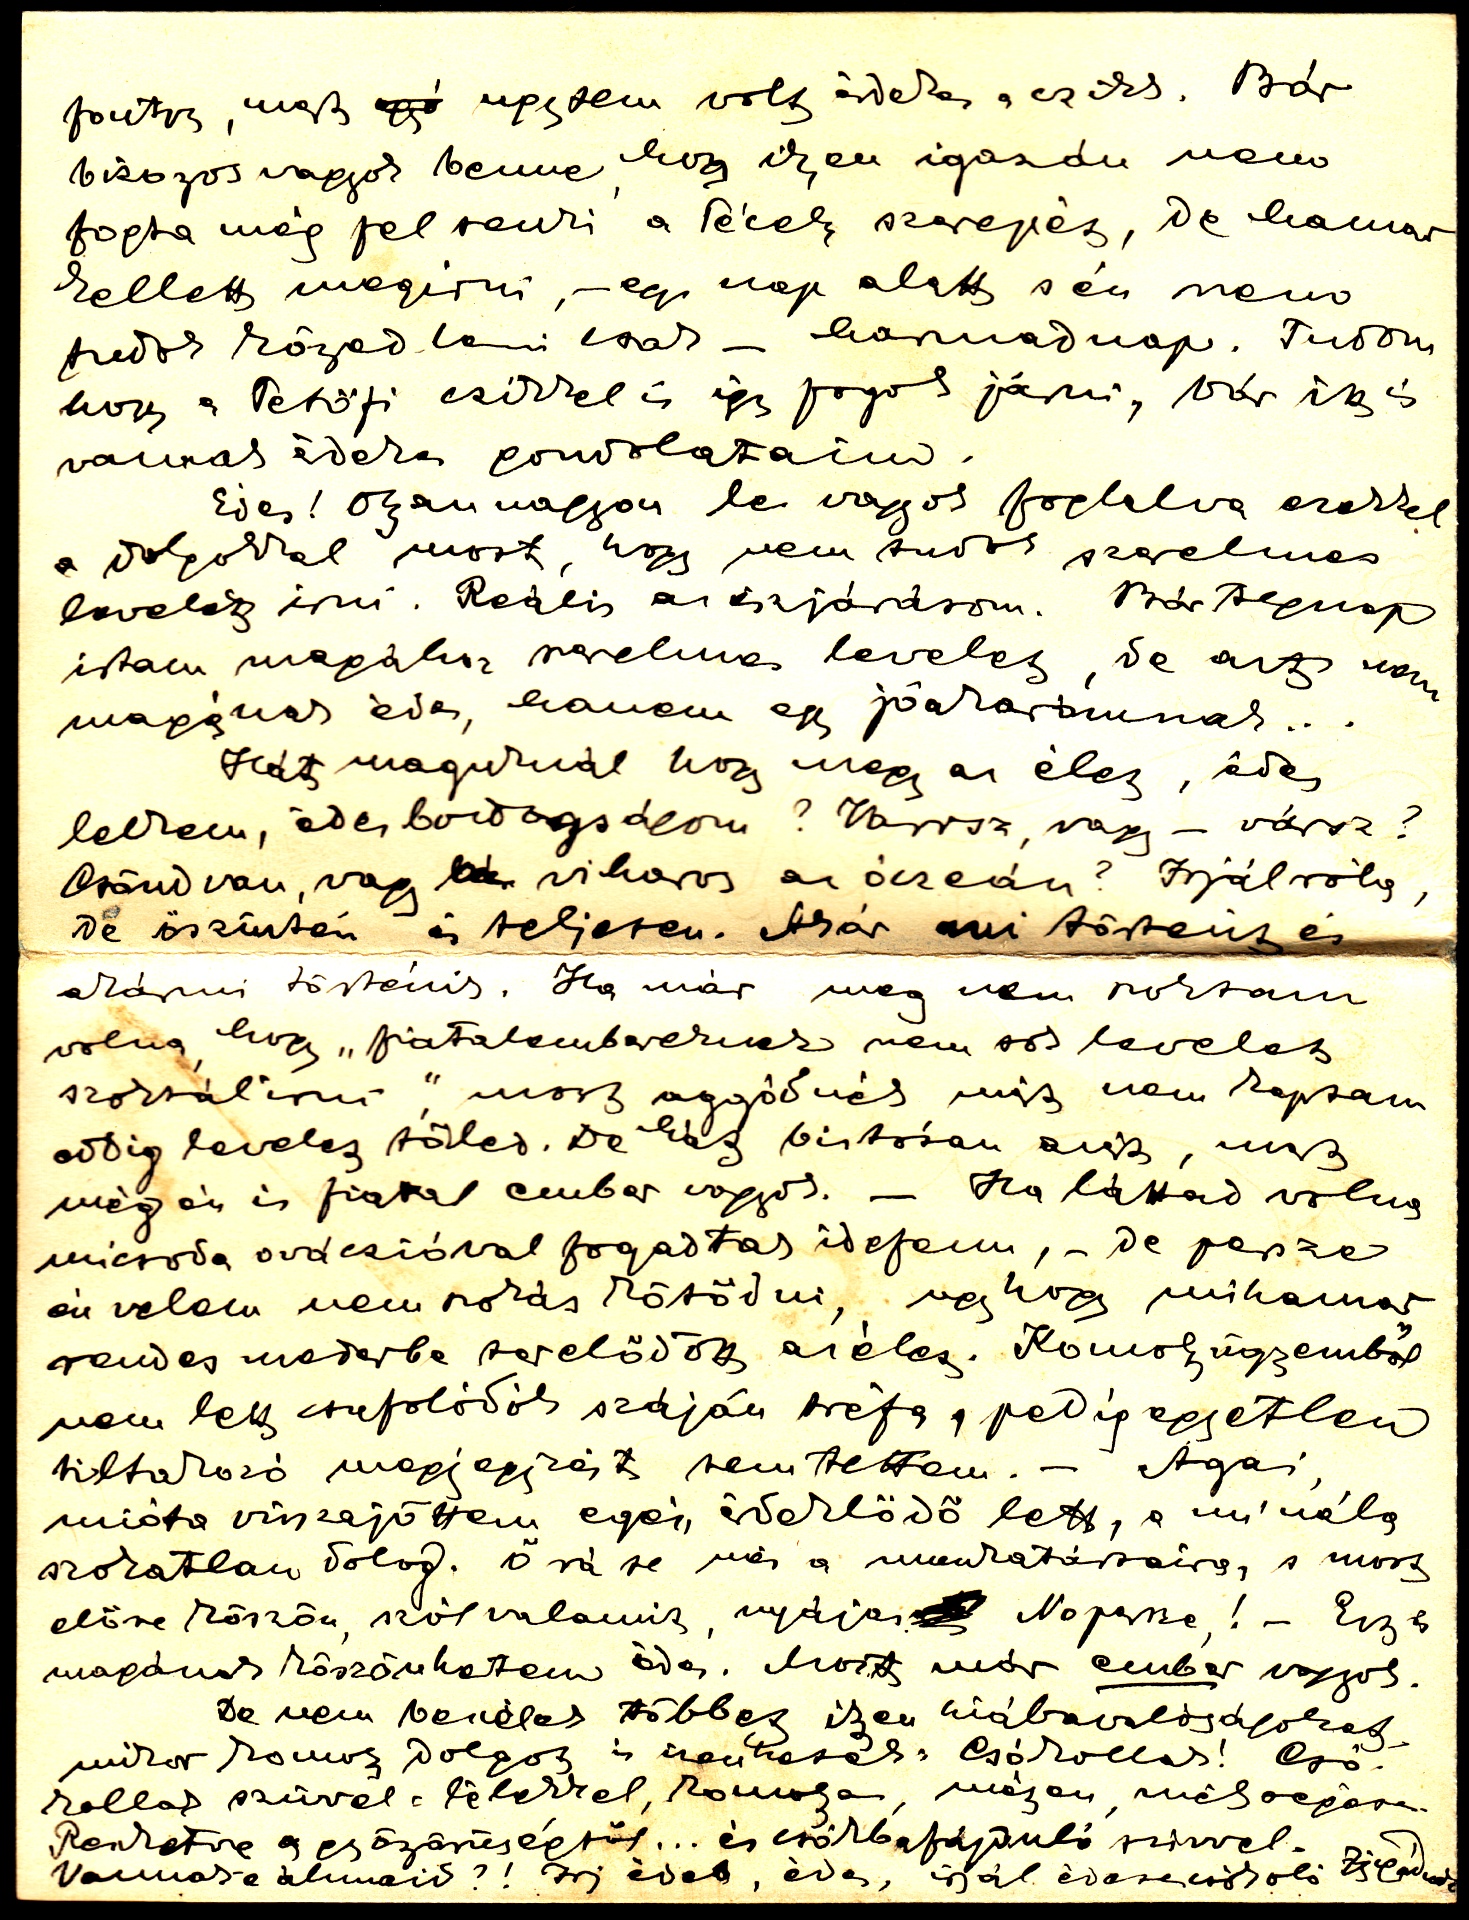 mert ugysem volt érdekes a czikk. Bár
bizonyos vagyok benne, hogy ilyen igazán nem
fogta még fel senki a Péczely szerepét, de hamar
kellett megirni, – egy nap alatt s én nem
tudok közzed lenni csak – harmadnap. Tudom
hogy a Petőfi czikkel is igy fogok járni, bár itt is
vannak érdekes gondolataim.
Édes! Olyan nagyon le vagyok foglalva ezekkel
a dolgokkal most, hogy nem tudok szerelmes
levelet irni. Reális az észjárásom. Bár tegnap
irtam magához szerelmes levelet, de azt nem
magának édes, hanem egy jóakarómnak...
Hát maguknál hogy megy az élet, édes
lelkem, édes boldogságom? Varrsz, vagy – vársz?
Csönd van, vagy viharos az óczeán? Irjál róla,
de őszintén és teljesen. Akár mi történt és
akármi történik. Ha már meg nem szoktam
volna, hogy „fiatalembereknek nem sok levelet
szoktál irni", most aggódnék mért nem kaptam
eddig levelet tőled. De hát biztosan azért, mert
még én is fiatal ember vagyok. – Ha láttad volna
micsoda ovációval fogadtak idefenn, – de persze
én velem nem szokás kötődni, ugyhogy mihamar
rendes mederbe terelődött az élet. Komoly ügyemből
nem lett csufolódók száján tréfa, pedig egyetlen
tiltakozó megjegyzést sem tettem. – Ágai,
mióta visszajöttem egész érdeklődő lett, a mi nála
szokatlan dolog. Ő rá se néz a munkatársaira, s most
előre köszön, szól valamit, nyájas Na persze! – Ezt is
magának köszönhetem édes. Most már ember vagyok.
De nem beszélek többet ilyen hiábavalóságokat
mikor komoly dolgok is Csókollak! Csó-
kollak szüvel-lélekkel, komolyan, mélyen, mélységesen.
Reszketve a gyönyörüségtől... és csókba fájduló szivvel.
Vannak-e álmaid?! Irj édes, édes, irjál édesen csókoló